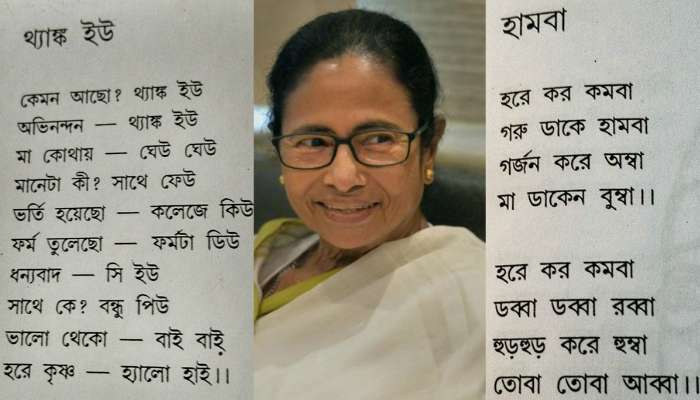 থ্যাঙ্ক ইউ
কেমন আছো? থ্যাঙ্ক ইউ
অভিনন্দন — থ্যাঙ্ক ইউ
মা কোথায় — ঘেউ ঘেউ
মানেটা কী? সাথে ফেউ
ভর্তি হয়েছো — কলেজে কিউ
ফর্ম তুলেছো — ফর্মটা ডিউ
ধন্যবাদ — সি ইউ
সাথে কে? বন্ধু পিউ
ভালো থেকো — বাই বাই
হরে কৃষ্ণ — হ্যালো হাই।।
হামবা
হরে কর কমবা
গরু ডাকে হামবা
গর্জন করে অম্বা
মা ডাকেন বুম্বা।।
হরে কর কমবা
ডব্বা ডব্বা রব্বা
হুড়হুড় করে হুম্বা
তোবা তোবা আব্বা।।